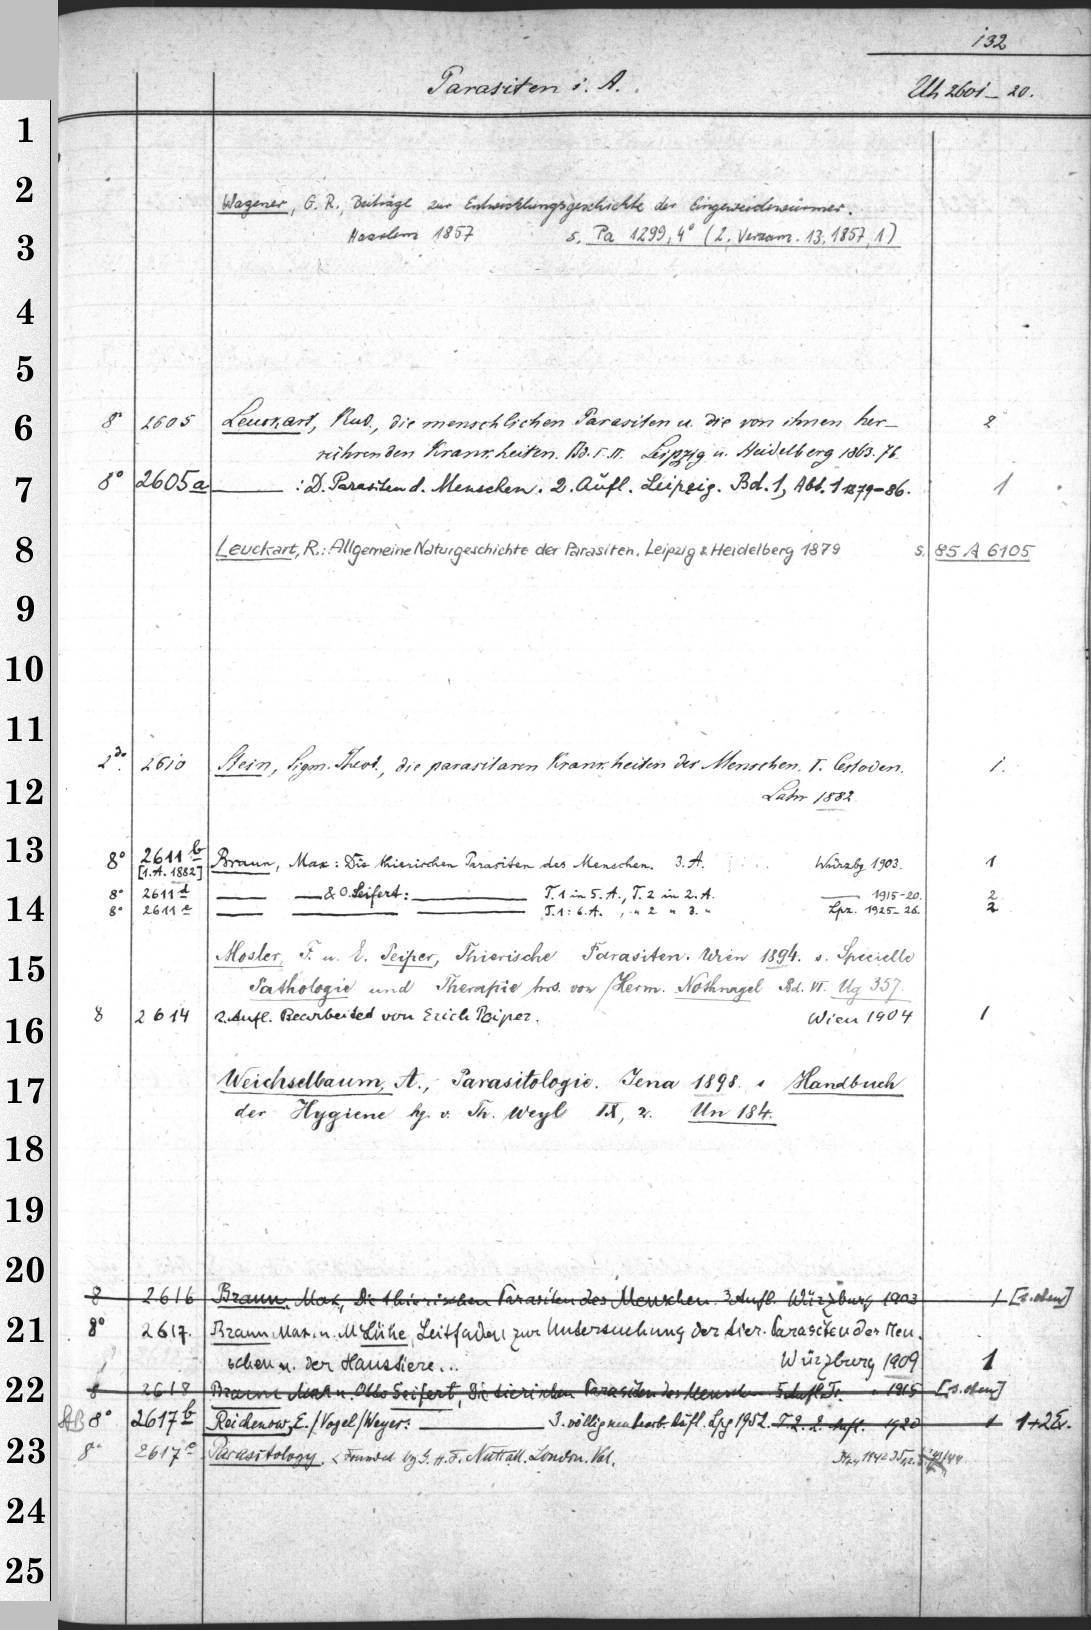 132
Parasiten i. A. Uh 2601-20.
1
2
Wagener, G. R., Beiträge zur Entwicklungsgeschichte der Eingeweidewürmer.
3
Haarlem 1857 s. Pa 1299, 4° (2, Verzam. 13, 1857, 1)
4
5
6
8° 2605 Leuckart, Rud., die menschlichen Parasiten u. die von ihnen her-
2
rührenden Krankheiten. Bd. I. II. Leipzig u. Heidelberg 1863. 76.
7
8° 2605a ——— : D. Parasiten d. Menschen. 2. Aufl. Leipzig. Bd. 1, Abt. 1 1879-86. 1
8
Leuckart, R.: Allgemeine Naturgeschichte der Parasiten. Leipzig & Heidelberg 1879 s. 85 A 6105
9
10
11
2610 Stein, Sigm. Theod., die parasitären Krankheiten des Menschen. I. Cestoden. 1.
12
Lahr 1882
13
8° 2611 b Braun, Max: Die thierischen Parasiten des Menschen. 3. A. Würzbg 1903. 1
[1. A. 1882]
8° 2611 d —— —— & O. Seifert: ——— T. 1 in 5. A., T. 2 in 2. A. —— 1915-20. 2
14
8° 2611 e —— ——— ——— T. 1: 6. A., " 2 " 3. " Lpz. 1925-26. 2
15
Mosler, F. u. E. Peiper, Thierische Parasiten. Wien 1894. s. Specielle
Pathologie und Therapie hrs. von Herm. Nothnagel Bd. VI. Ug 357.
16
8 2614 2. Aufl. Bearbeitet von Erich Peiper. Wien 1904 1
17
Weichselbaum, A., Parasitologie. Jena 1898. s Handbuch
der Hygiene hg. v. Th. Weyl IX, 2. Un 184.
18
19
20
8 2616 Braun, Max, Die thierischen Parasiten des Menschen. 3 Aufl. Würzburg 1903 1 [s. oben]
21
8° 2617. Braun Max. u. M Lühe, Leitfaden zur Untersuchung der tier. Parasiten der Men.
schen u. der Haustiere... Würzburg 1909 1
22
8 2618 Braun Max u. Otto Seifert, Die tierischen Parasiten des Menschen 5. Aufl. T. 1915 [s. oben]
8° 2617 b Reichenow, E./Vogel/Weyer: ——— 3. völlig neubearb. Aufl. Lpg 1952. T. 2. 2. Aufl. 1920 1 1+2Ex.
23
8° 2617 c Parasitology. Founded by G. H. F. Nuttall. London. Vol.
24
25